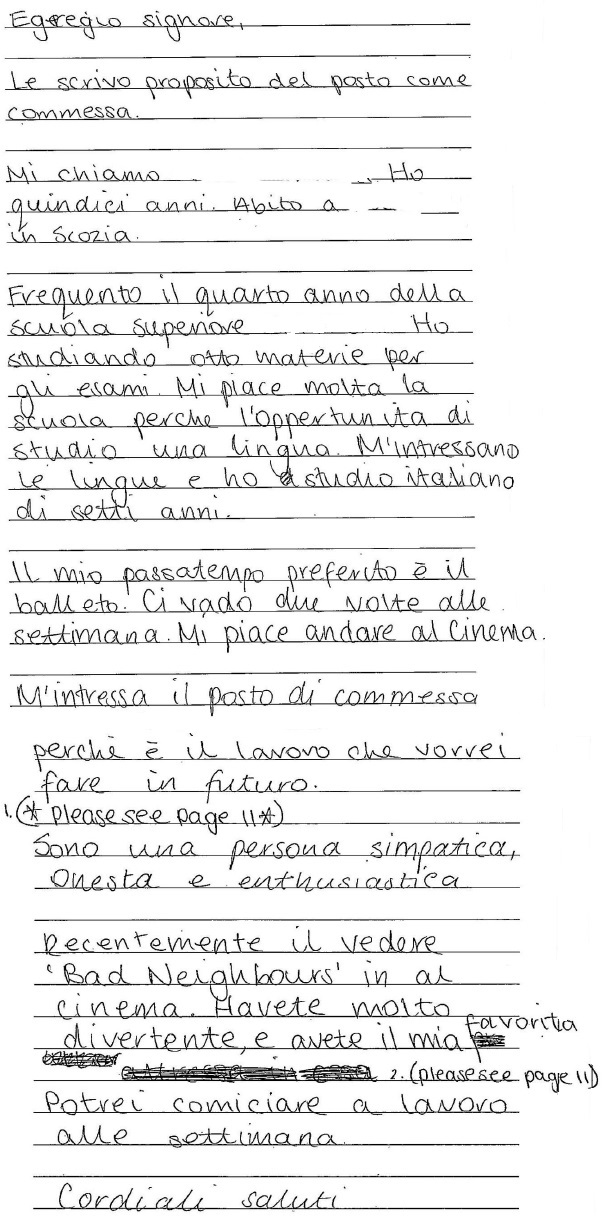 Egregio signore,
Le scrivo proposito del posto come
commessa.
Mi chiamo Ho
quindici anni. Abito a
in Scozia.
Frequento il quarto anno della
scuola superiore Ho
studiando otto materie per
gli esami. Mi piace molta la
scuola perche l'oppertunita di
studio una lingua. M'intressano
le lingue e ho studio italiano
di setti anni.
Il mio passatempo preferito è il
balleto. Ci vado due volte alle
settimana. Mi piace andare al Cinema.
M'intressa il posto di commessa
perchè è il lavoro che vorrei
fare in futuro.
1.(* please see page 11*)
Sono una persona simpatica,
Onesta e enthusiastica
Recentemente il vedere
'Bad Neighbours' in al
cinema. Havete molto
divertente, e avete il mia favorita
2. (please see page 11)
Potrei comiciare a lavoro
alle settimana.
Cordiali saluti